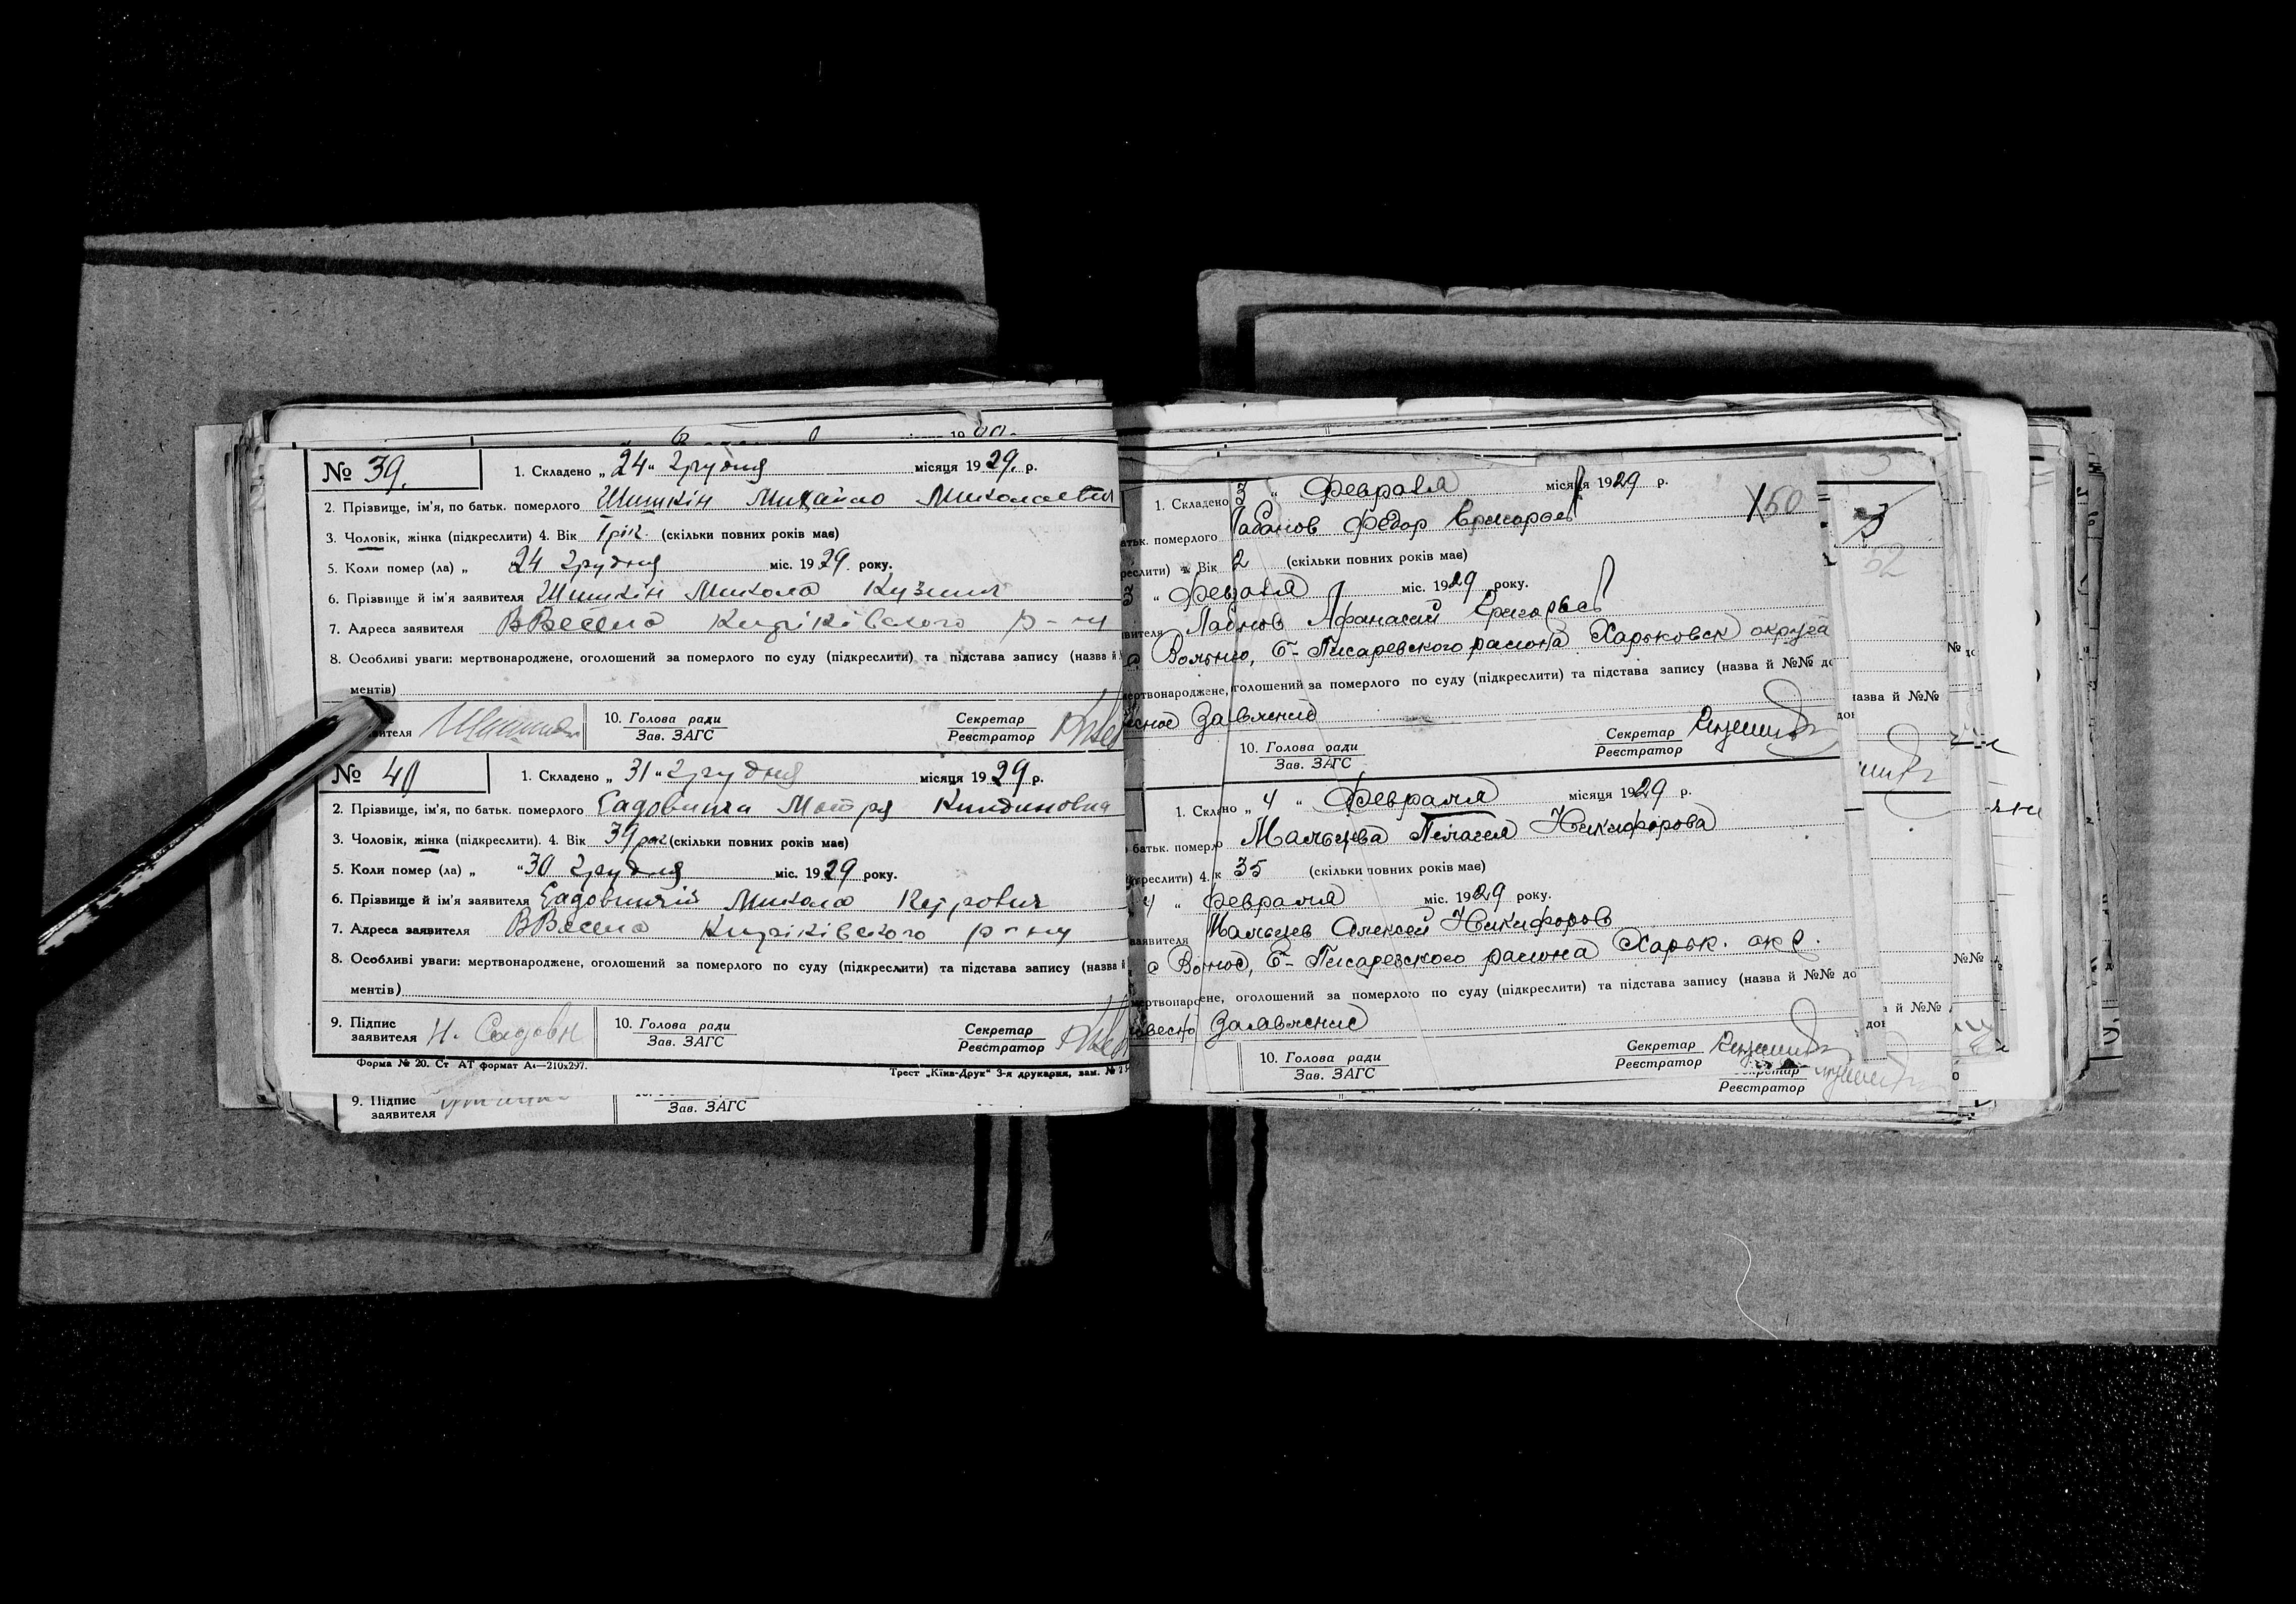 № 39.
1. Складено „ 24 “ грудня місяця 1929. р.
2. Прізвище, ім'я, по батьк. померлого Шишкін Михайло Миколаєвич
3. Чоловік, жінка (підкреслити) 4. Вік 1 рік. (скільки повних років має)
5. Коли помер (ла) „ 24 грудня міс. 1929. року.
6. Прізвище й ім'я заявителя Шишкін Микола
7. Адреса заявителя Киріківського р-ну
8. Особливі уваги: мертвонароджене, оголошений за померлого по суду (підкреслити) та підстава запису (назва й
ментів)
вителя
10. Голова ради
Зав. ЗАГС
Секретар
Реєстратор
№ 40
1. Складено „ 31 “ грудня місяця 1929 р.
2. Прізвище, ім'я, по батьк. померлого Мотря
3. Чоловік, жінка (підкреслити). 4. Вік 39 рок (скільки повних років має)
5. Коли помер (ла) „ “ 30 грудня міс. 1929 року.
6. Прізвище й ім'я заявителя Микола Петрович
7. Адреса заявителя Киріківського р-ну
8. Особливі уваги: мертвонароджене, оголошений за померлого по суду (підкреслити) та підстава запису (назва й
ментів)
9. Підпис
заявителя Н. Садовн
10. Голова ради
Зав. ЗАГС
Секретар
Реєстратор
Форма № 20. Ст АТ формат А4—210x297.
Трест „Київ-Друк“ 3-я друкарня, зам. №
9. Підпис
заявителя
Зав. ЗАГС
1. Складено 3 “ Февраля місяця 1929 р.
150
атьк. померлого Лабанов Фёдор Григорьев
реслити) 4. Вік 2 (скільки повних років має)
3 “ Февраля міс. 1929 року.
явителя Лабанов Афанасий Григорьев
Вольное, Б-Писаревского района Харьковск округа
мертвонароджене, голошений за померлого по суду (підкреслити) та підстава запису (назва й №№ до
есное Заявление
10. Голова ради
Зав. ЗАГС
Секретар
Реєстратор
1. Складено „ 4 “ Февраля місяця 1929 р.
о батьк. померло Мальцева Пелагея Никифорова
креслити) 4. к 35 (скільки повних років має)
4 “ Февраля міс. 1929 року.
заявителя Мальцев Алексей Никифоров
с Вольное, Б-Писаревского района Харьк. окр.
мертвонароджене, оголошений за померлого по суду (підкреслити) та підстава запису (назва й №№ до
овесно Заявление
10. Голова ради
Зав. ЗАГС
Секретар
Реєстратор
Секретар
Реєстратор
№ до
назва й №№
дон
№№
й №№
дон